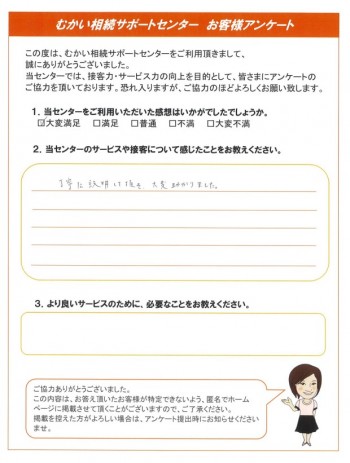 むかい相続サポートセンター　お客様アンケート
この度は、むかい相続サポートセンターをご利用頂きまして、
誠にありがとうございました。
当センターでは、接客力・サービス力の向上を目的として、皆さまにアンケートの
ご協力を頂いております。恐れ入りますが、ご協力のほどよろしくお願い致します。
１．当センターをご利用いただいた感想はいかがでしたでしょうか。
☑大変満足　□満足　□普通　□不満　□大変不満
２．当センターのサービスや接客について感じたことをお教えください。
丁寧に説明して頂き 大変助かりました。
３．より良いサービスのために、必要なことをお教えください。
ご協力ありがとうございました。
この内容は、お答え頂いたお客様が特定できないよう、匿名でホーム
ページに掲載させて頂くことがございますので、ご了承ください。
掲載を控えた方がよろしい場合は、アンケート提出時にお知らせください
ませ。